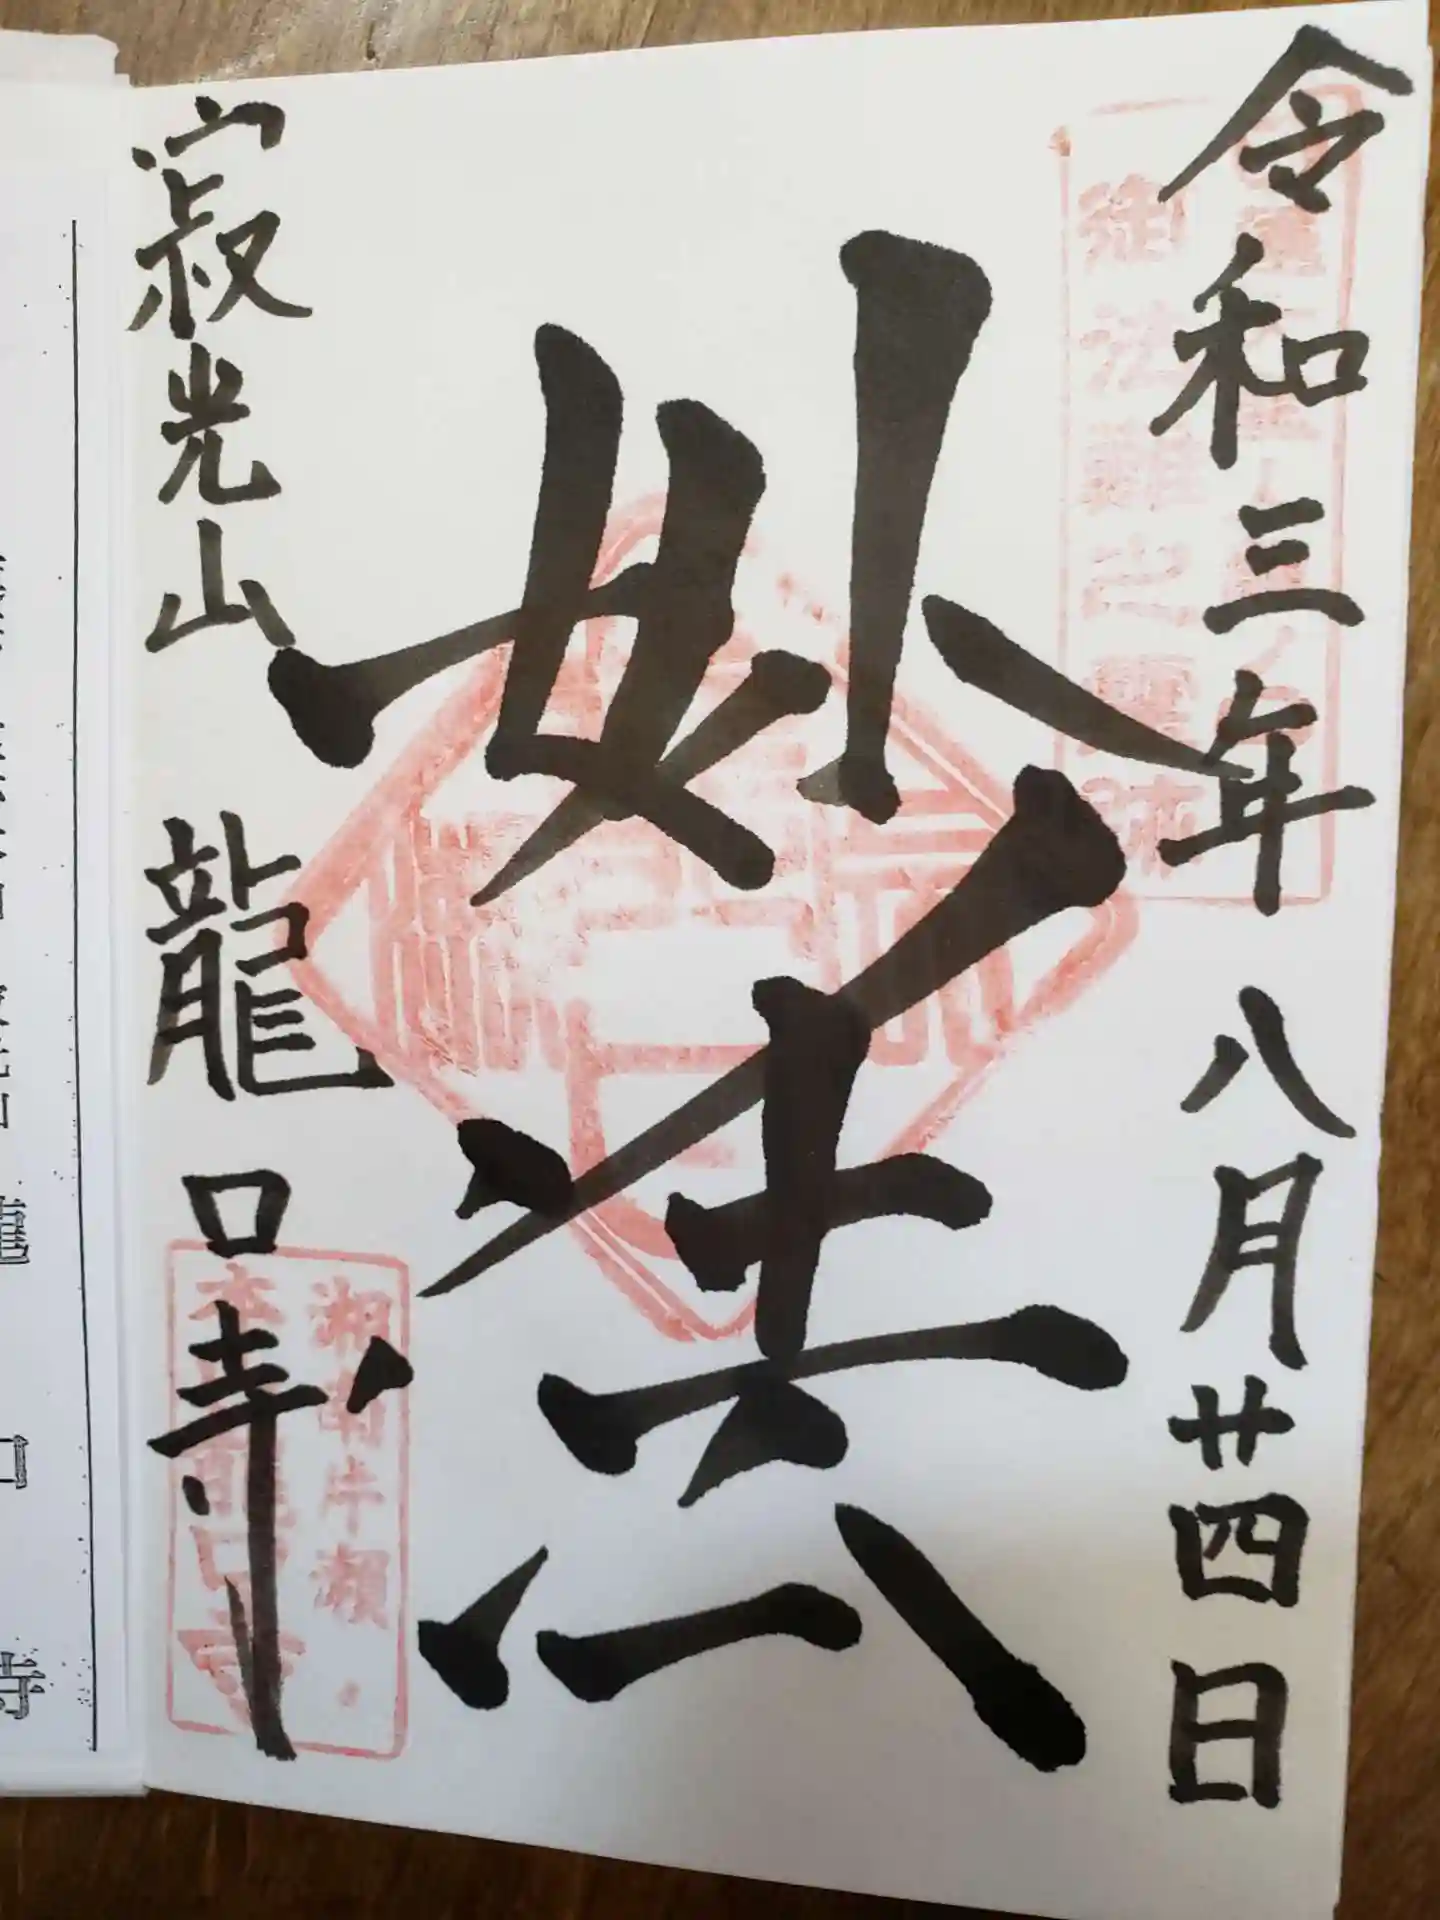 令和三年八月廿四日
御法難之霊跡
妙法
寂光山 龍口寺
湘南片瀬
本山龍口寺